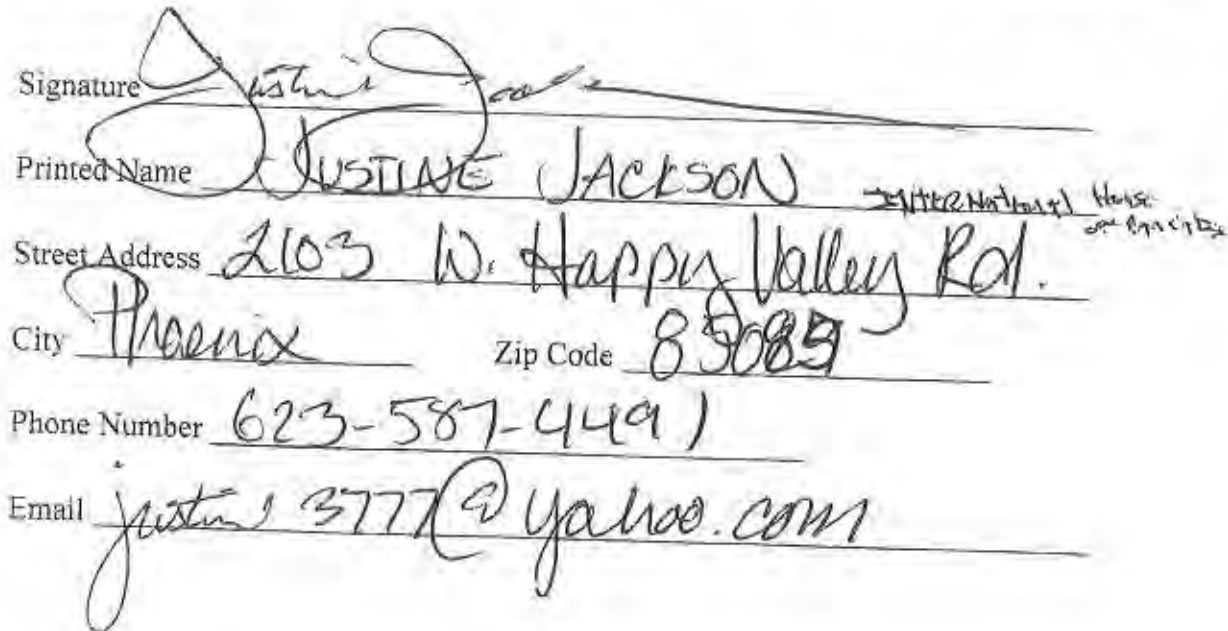 Signature Justine
Printed Name JUSTINE JACKSON
INTERNational House
Street Address 2103 W. Happy Valley Rd.
City Phoenix Zip Code 85085
Phone Number 623-587-4491
Email 3777@yahoo.com